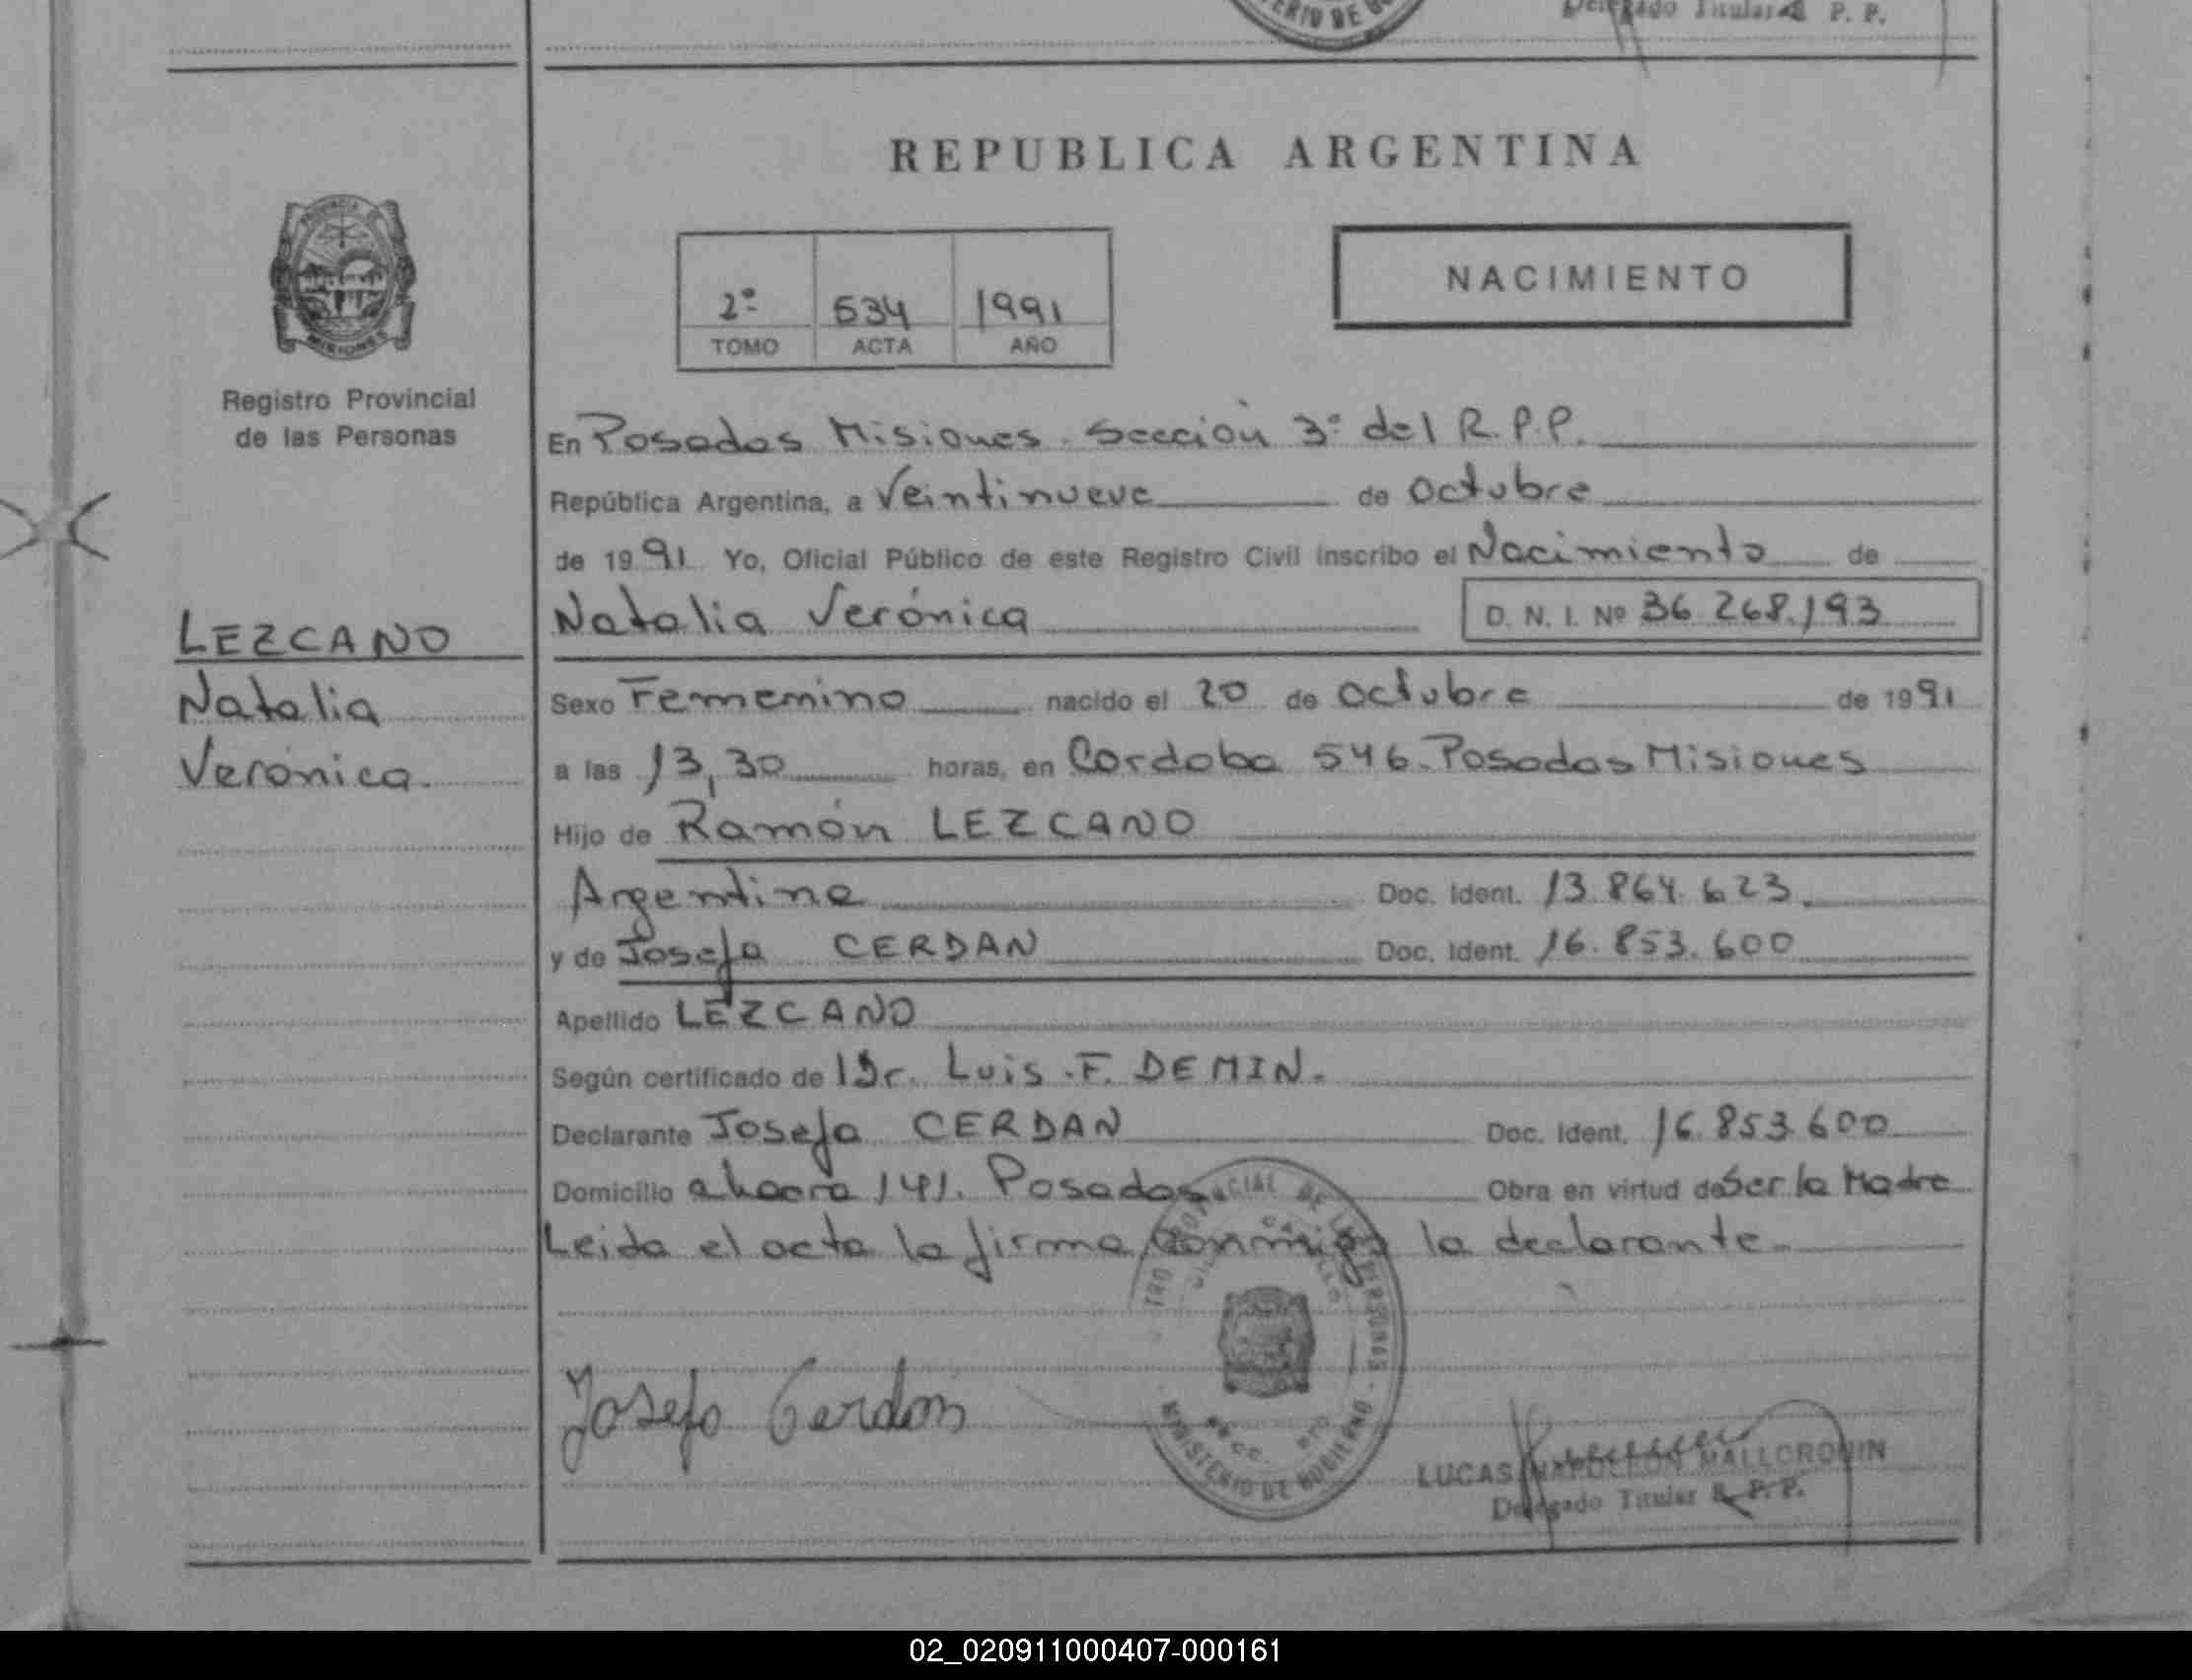 Delegado Titular R. P. P.
REPUBLICA ARGENTINA
PROVINCIA DE
MISIONES
Registro Provincial
de las Personas
2º 534 1991
TOMO ACTA AÑO
NACIMIENTO
En Posadas Misiones. Sección 3º del R.P.P.
República Argentina, a Veintinueve de Octubre
de 1991 Yo, Oficial Público de este Registro Civil inscribo el Nacimiento de
Natalia Verónica D. N. I. Nº 36.268.193
LEZCANO
Natalia
Verónica.
Sexo Femenino nacido el 20 de Octubre de 1991
a las 13,30 horas, en Cordoba 546. Posadas Misiones
Hijo de Ramón LEZCANO
Argentina Doc. Ident. 13.864.623.
y de Josefa CERDAN Doc. Ident. 16.853.600
Apellido LEZCANO
Según certificado de l Dr. Luis F. DEMIN.
Declarante Josefa CERDAN Doc. Ident. 16.853.600
Domicilio 141. Posadas Obra en virtud de Ser la Madre
Leida el acta la firma conmigo la declarante.
DE LAS PERSONAS
MINISTERIO DE GOBIERNO
Josefa Cerdan
LUCAS NAPOLEON MALLORQUIN
Delegado Titular R. P. P.
02_020911000407-000161